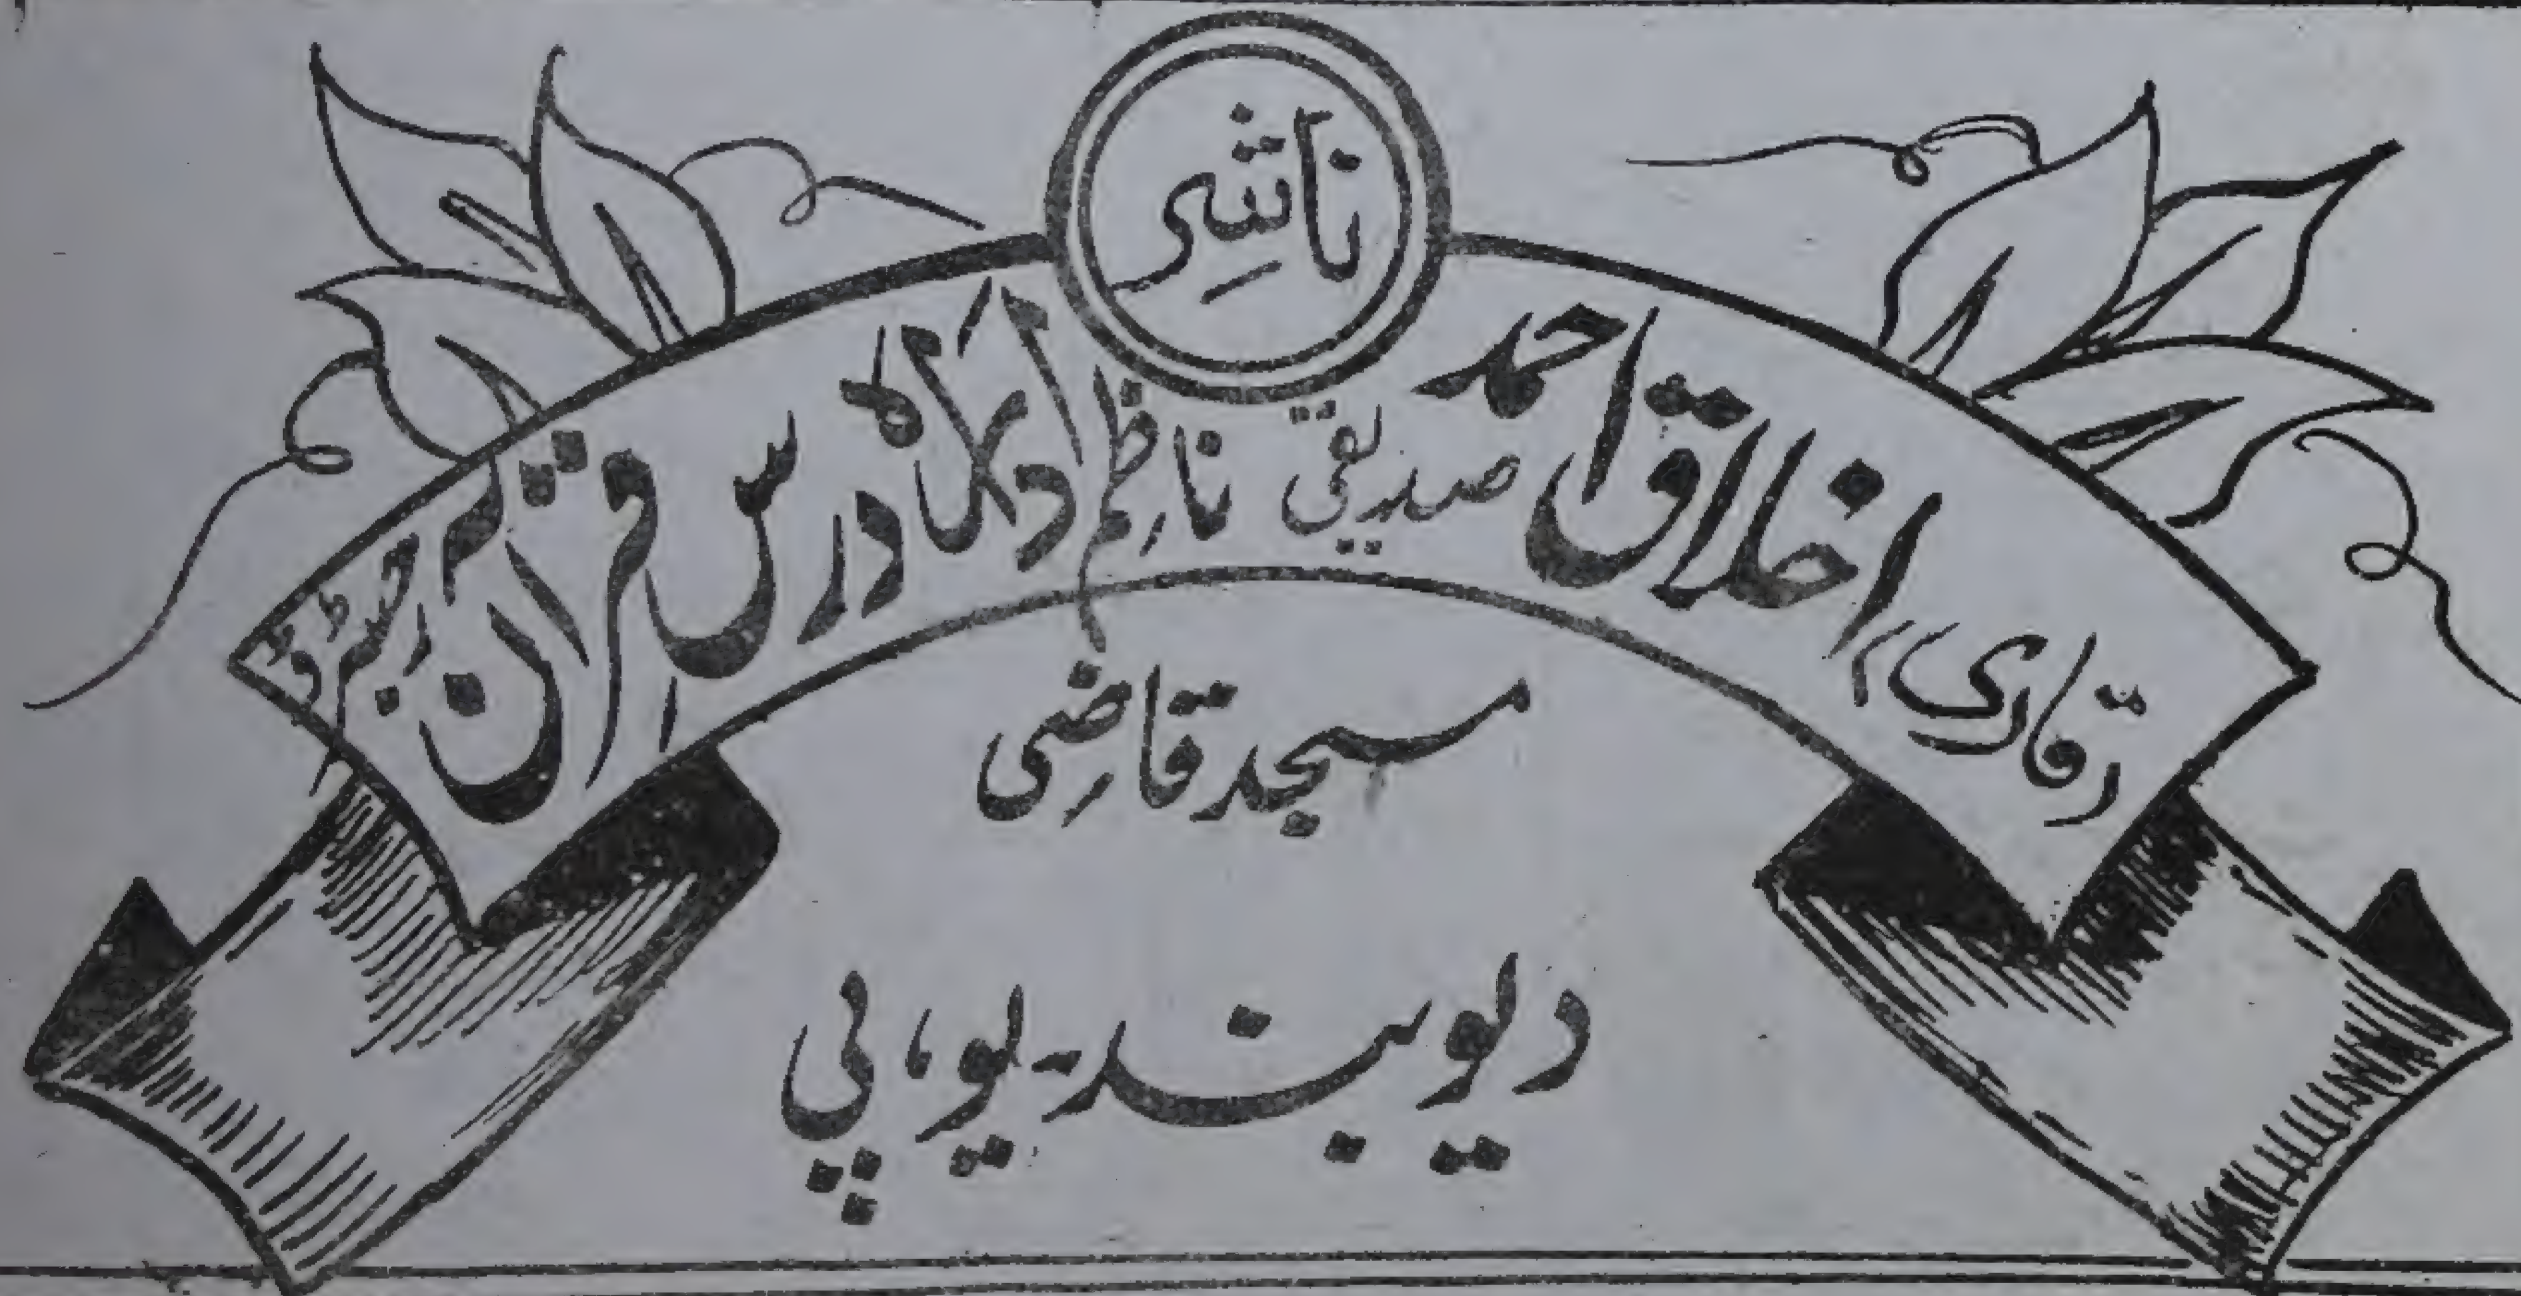 ناشِر
(قاری) اخلاق احمد صدیقی ناظم ادارہ درس قرآن رجسٹرڈ
مسجد قاضی
دیوبند - یو، پی